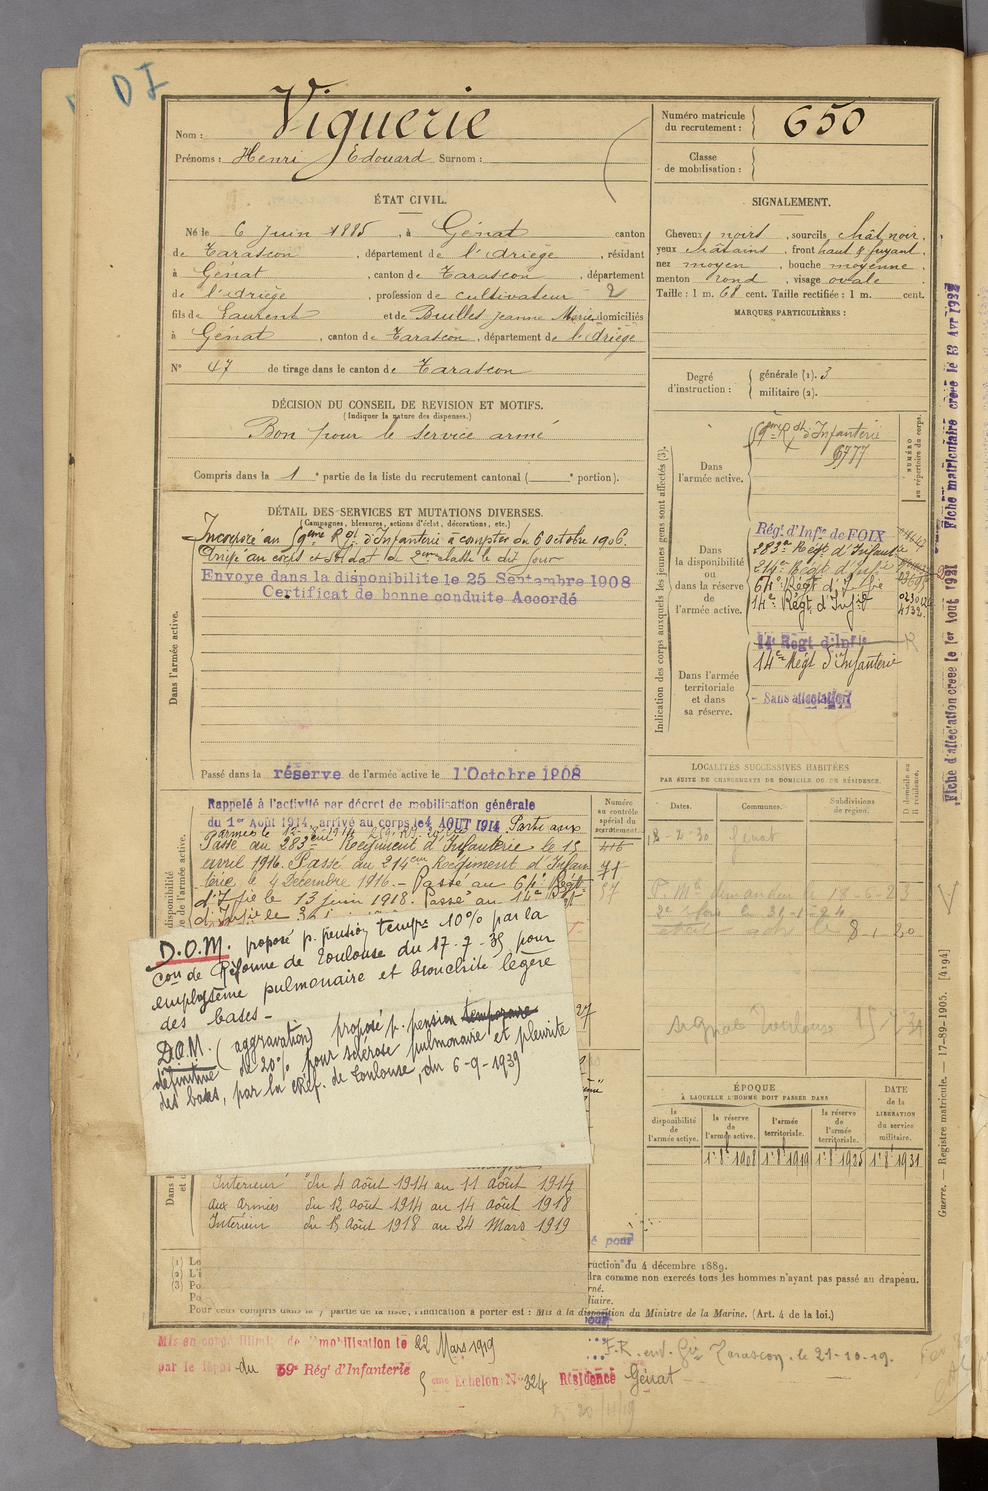 DI
Nom : Viguerie
Prénoms : Henri Edouard Surnom :
Numéro matricule du recrutement : 650
Classe de mobilisation :
ÉTAT CIVIL.
Né le 6 Juin 1885, à Génat canton
de Tarascon, département de l'Ariège, résidant
à Génat, canton de Tarascon, département
de l'Ariège, profession de cultivateur 2
fils de Laurent et de Builles Jeanne Marie domiciliés
à Génat, canton de Tarascon, département de l'Ariège
N° 47 de tirage dans le canton de Tarascon
SIGNALEMENT.
Cheveux noirs, sourcils chât noir,
yeux châtains, front haut & fuyant,
nez moyen, bouche moyenne,
menton rond, visage ovale
Taille : 1 m. 68 cent. Taille rectifiée : 1 m. cent.
MARQUES PARTICULIÈRES :
Degré d'instruction : générale (1). 3
militaire (2).
DÉCISION DU CONSEIL DE REVISION ET MOTIFS.
(Indiquer la nature des dispenses.)
Bon pour le service armé
Compris dans la 1 e partie de la liste du recrutement cantonal ( e portion).
DÉTAIL DES SERVICES ET MUTATIONS DIVERSES.
(Campagnes, blessures, actions d'éclat, décorations, etc.)
Dans l'armée active.
Incorporé au 59eme Rgt d'Infanterie à compter du 6 octobre 1906.
Arrivé au corps et soldat de 2eme classe le dit jour
Envoye dans la disponibilite le 25 Septembre 1908
Certificat de bonne conduite Accordé
Passé dans la réserve de l'armée active le 1 Octobre 1908
Indication des corps auxquels les jeunes gens sont affectés (3).
NUMÉRO au répertoire du corps.
Dans l'armée active.
59eme Rgt d'Infanterie
6777
Dans la disponibilité ou dans la réserve de l'armée active.
Régt d'Infie de FOIX
283e Régt d'Infant
214e Régt d'Infie
64e Régt d'Infie
14e Régt d'Infie
Dans l'armée territoriale et dans sa réserve.
14e Régt d'Infie
14e Régt d'Infanterie
Sans affectation
LOCALITÉS SUCCESSIVES HABITÉES
PAR SUITE DE CHANGEMENTS DE DOMICILE OU DE RÉSIDENCE.
Dates. Communes. Subdivisions de région. D domicile ou R résidence.
8-2-30 Génat
8-1-20
Rappelé à l'activité par décret de mobilisation générale
du 1er Août 1914, arrivé au corps le 4 AOUT 1914. Parti aux
armées le 12-8-1914
Passé au 283eme Régiment d'Infanterie le 15
avril 1916. Passé au 214eme Régiment d'Infan
terie, le 4 Décembre 1916. - Passé au 64e Régt
d'Infie le 13 juin 1918. Passé au 14e Régt
d'Infie le
Numéro au contrôle spécial du recrutement.
416
71
57
D.O.M. proposé p. pension tempre 10% par la
Con de Réforme de Toulouse du 17-7-35 pour
emphysème pulmonaire et bronchite légère
des bases -
D.O.M. (aggravation) proposé p. pension temporaire
définitive de 20% pour sclérose pulmonaire et pleurite
des bases, par la CRéf. de Toulouse, du 6-9-1939
Intérieur du 4 août 1914 au 11 août 1914
aux armées du 12 août 1914 au 14 août 1918
Intérieur du 15 août 1918 au 24 Mars 1919
ÉPOQUE
À LAQUELLE L'HOMME DOIT PASSER DANS
la disponibilité de l'armée active. la réserve de l'armée active. l'armée territoriale. la réserve de l'armée territoriale.
DATE de la LIBÉRATION du service militaire.
1 8 1908 1 8 1919 1 8 1925 1 8 1931
ruction du 4 décembre 1889.
dra comme non exercés tous les hommes n'ayant pas passé au drapeau.
Pour ceux compris dans la 7 partie de la liste, l'indication à porter est : Mis à la disposition du Ministre de la Marine. (Art. 4 de la loi.)
Mis en congé illimité de démobilisation le 22 Mars 1919
par le dépôt du 59e Rég' d'Infanterie
5eme Echelon N° 324 Résidence Génat
F.R. ent. Gie Tarascon, le 21-10-19.
Fiche d'affectation creee le 1er Aout 1921
Fiche matriculaire creee le 13 Avr 1932
Guerre. — Registre matricule. — 17-89-1905. [4194]